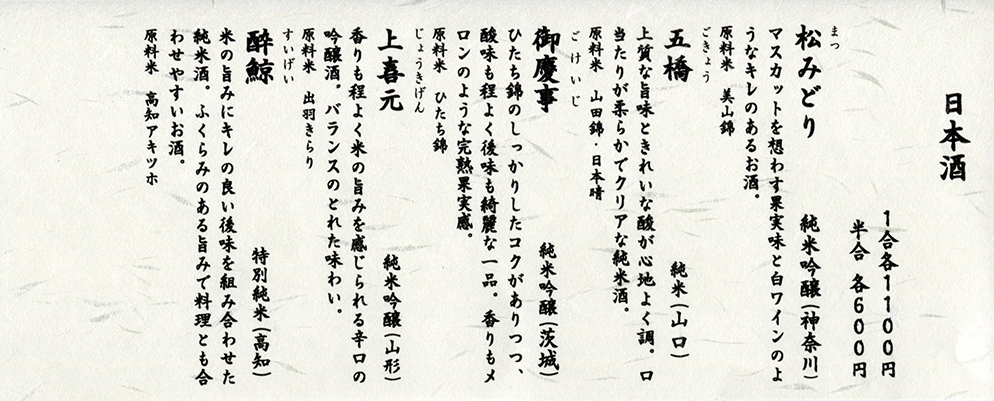 日本酒
1合各1100円
半合 各600円
まつ
松みどり 純米吟醸(神奈川)
マスカットを想わす果実味と白ワインのよ
うなキレのあるお酒。
原料米 美山錦
ごきょう
五橋 純米(山口)
上質な旨味ときれいな酸が心地よく調。口
当たりが柔らかでクリアな純米酒。
原料米 山田錦・日本晴
ごけいじ
御慶事 純米吟醸(茨城)
ひたち錦のしっかりしたコクがありつつ、
酸味も程よく後味も綺麗な一品。香りもメ
ロンのような完熟果実感。
原料米 ひたち錦
じょうきげん
上喜元 純米吟醸(山形)
香りも程よく米の旨みを感じられる辛口の
吟醸酒。バランスのとれた味わい。
原料米 出羽きらり
すいげい
酔鯨 特別純米(高知)
米の旨みにキレの良い後味を組み合わせた
純米酒。ふくらみのある旨みで料理とも合
わせやすいお酒。
原料米 高知アキツホ